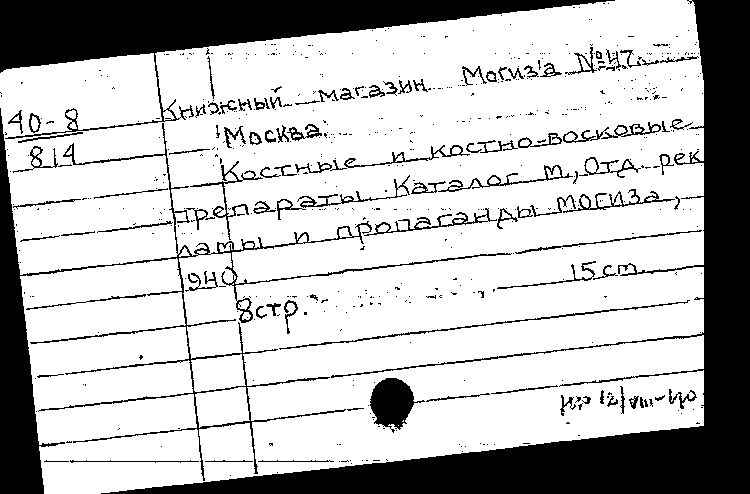 40-8
814
Книжный магазин Могиз'а №47.
Москва.
Костные и костно-восковые
препараты. Каталог м., Отд. рек
ламы и пропаганды МОГИЗа,
940.
8стр. 15 cm.
12/VIII-40